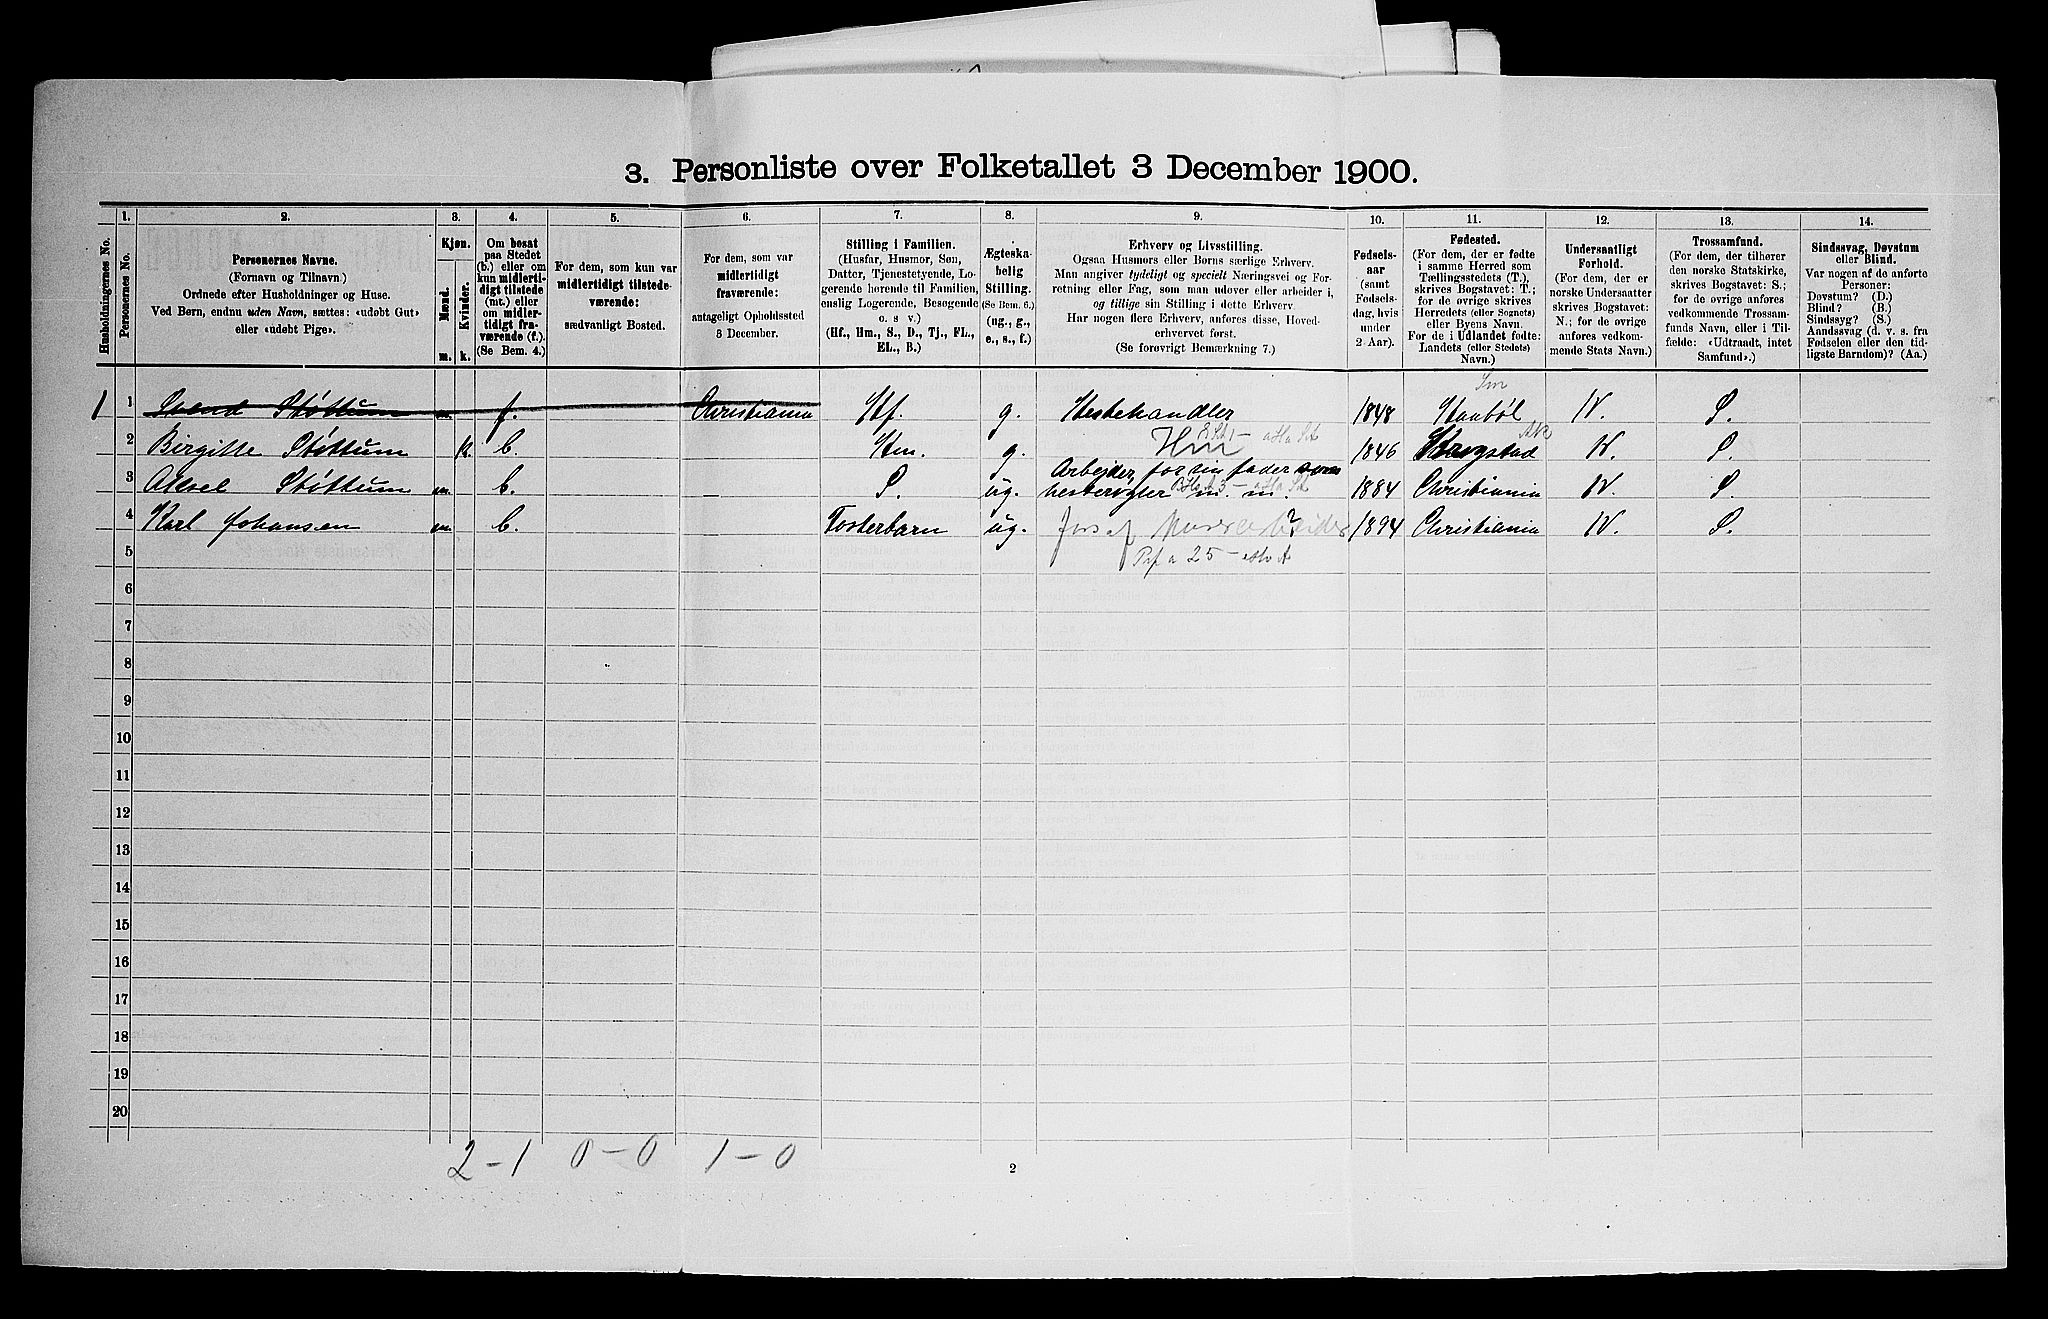 3. Personliste over Folketallet 3 December 1900.
1. 2. 3. 4. 5. 6. 7. 8. 9. 10. 11. 12. 13. 14.
Husholdningernes No.
Personernes No.
Personernes Navne.
(Fornavn og Tilnavn)
Ordnede efter Husholdninger og Huse.
Ved Børn, endnu uden Navn, sættes: «udøbt Gut»
eller «udøbt Pige».
Kjøn.
Mænd.
Kvinder.
m. k.
Om bosat
paa Stedet
(b.) eller om
kun midlerti-
digt tilstede
(mt.) eller
om midler-
tidigt fra-
værende (f.).
(Se Bem. 4.)
For dem, som kun var
midlertidigt tilstede-
værende:
sædvanligt Bosted.
For dem, som var
midlertidigt
fraværende:
antageligt Opholdssted
3 December.
Stilling i Familien.
(Husfar, Husmor, Søn,
Datter, Tjenestetyende, Lo-
gerende hørende til Familien,
enslig Logerende, Besøgende
o. s v.)
(Hf., Hm., S., D., Tj., FL.,
EL., B.)
Ægteska-
belig
Stilling.
(Se Bem. 6.)
(ug., g.,
e., s., f.)
Erhverv og Livsstilling.
Ogsaa Husmors eller Børns særlige Erhverv.
Man angiver tydeligt og specielt Næringsvei og For-
retning eller Fag, som man udøver eller arbeider i,
og tillige sin Stilling i dette Erhverv.
Har nogen flere Erhverv, anføres disse, Hoved-
erhvervet først.
(Se forøvrigt Bemærkning 7.)
Fødsels-
aar
(samt
Fødsels-
dag, hvis
under
2 Aar).
Fødested.
(For dem, der er fødte
i samme Herred som
Tællingsstedets (T.),
skrives Bogstavet: T.;
for de øvrige skrives
Herredets (eller Sognets)
eller Byens Navn.
For de i Udlandet fødte:
Landets (eller Stedets)
Navn.)
Undersaatligt
Forhold.
(For dem, der er
norske Undersaatter
skrives Bogstavet:
N.; for de øvrige
anføres vedkom-
mende Stats Navn.)
Trossamfund.
(For dem, der tilhører
den norske Statskirke,
skrives Bogstavet: S.;
for de øvrige anføres
vedkommende Trossam-
funds Navn, eller i Til-
fælde: «Udtraadt, intet
Samfund».)
Sindssvag, Døvstum
eller Blind.
Var nogen af de anførte
Personer:
Døvstum? (D.)
Blind? (B.)
Sindssyg? (S.)
Aandssvag (d. v. s. fra
Fødselen eller den tid-
ligste Barndom)? (Aa.)
Sm
1 1 Svend Støttum m. f. Christiania Hf. g. Hestehandler 1848 Haabøl N. S.
Ak
2 Birgitte Støttum k. b. Hm. g. Hm 1846 Kragstad N. S.
Arbejder for sin fader som
3 Aksel Støttum m. b. S. ug. hesterøgter m. m. 1884 Christiania N. S.
4 Karl Johansen m. b. Fosterbarn ug. fors af ? 1894 Christiania N. S.
5 25
6
7
8
9
10
11
12
13
14
15
16
17
18
19
20
2-1 0-0 1-0
2